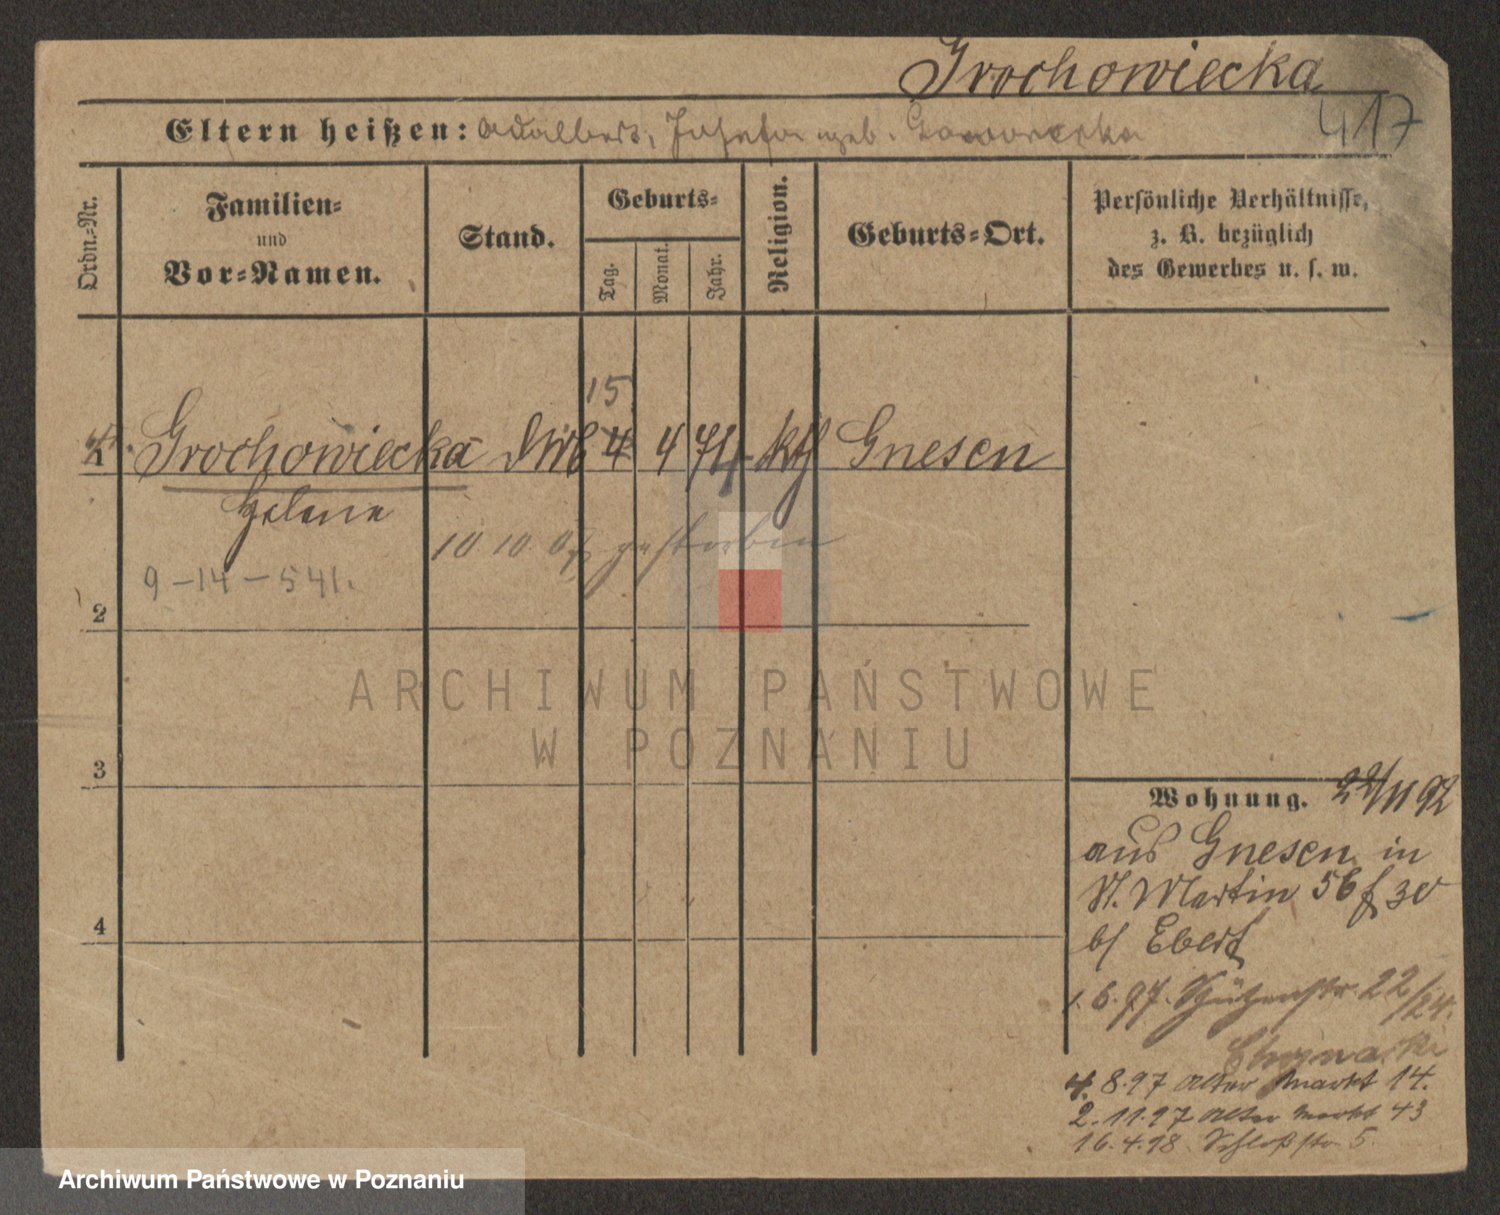 Grochowiecka
417
Eltern heißen: Adalbert, Josefa geb.
Ordn.-Nr.
Familien-
und
Vor-Namen.
Stand.
Geburts-
Tag.
Monat.
Jahr.
Religion.
Geburts-Ort.
Persönliche Verhältnisse,
z. B. bezüglich
des Gewerbes u. s. w.
15
1 Grochowiecka 4 4 74 kth Gnesen
Helene
10 10 gestorben
9-14-541.
2
ARCHIWUM PAŃSTWOWE
W POZNANIU
3
Wohnung. 22/11 92
aus Gnesen in
St. Martin 56
b/ Ebert
4
1.6.97. Schützenstr. 22/24.
4.8.97 Alter Markt 14.
2.11.97 Alter Markt 43
16.4.98 Schloßstr 5.
Archiwum Państwowe w Poznaniu